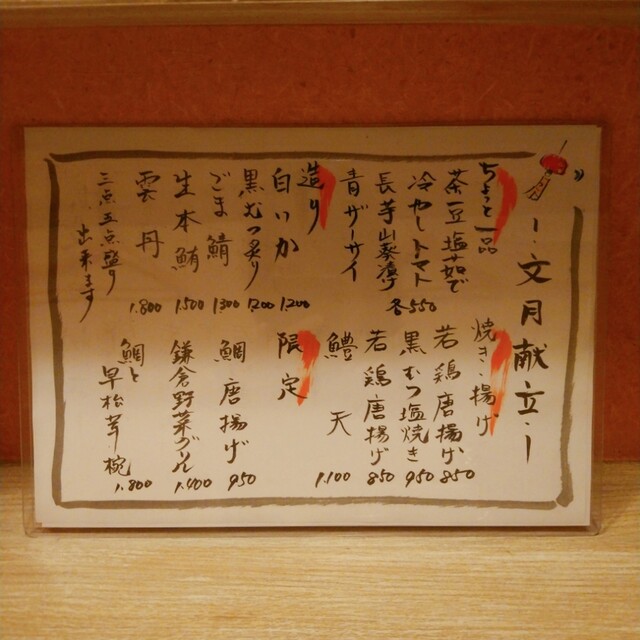 ・文月献立・
ちょっと一品
茶豆塩茹で
冷やしトマト
長芋山葵漬け
青ザーサイ
各550
造り
白いか 1.200
黒むつ炙り 1.200
ごま鯖 1.300
生本鮪 1.500
雲丹 1.800
三点五点盛り
出来ます
焼き・揚げ
若鶏唐揚げ 850
黒むつ塩焼き 950
若鶏唐揚げ 850
鱧天 1.100
限定
鯛唐揚げ 950
鎌倉野菜グリル 1.400
鯛と
早松茸椀 1.800